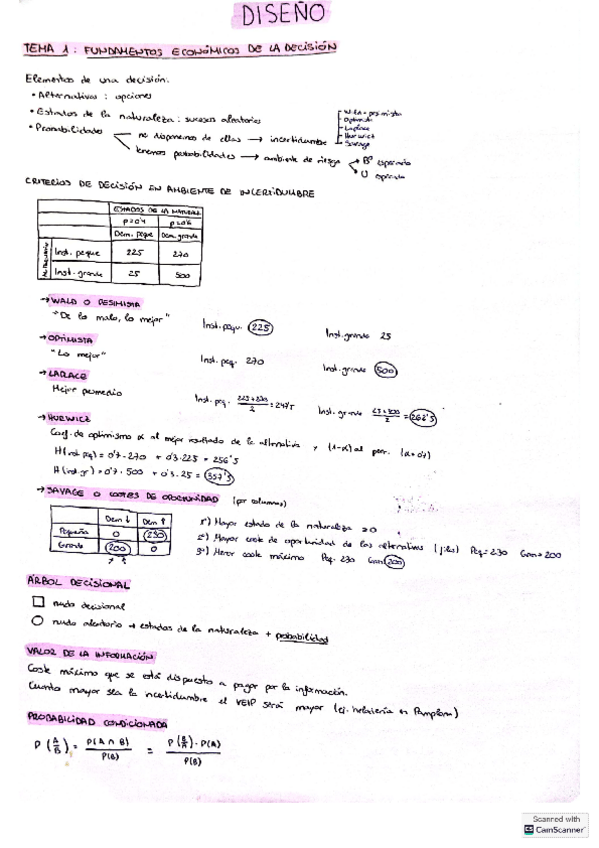 DISEÑO
TEMA 1: FUNDAMENTOS ECONÓMICOS DE LA DECISIÓN
Elementos de una decisión:
• Alternativas: opciones
• Estados de la naturaleza: sucesos aleatorios
• Probabilidades
no disponemos de ellas → incertidumbre
Wald o pesimista
Optimista
Laplace
Hurwicz
Savage
tenemos probabilidades → ambiente de riesgo
Bº esperado
U esperada
CRITERIOS DE DECISIÓN EN AMBIENTE DE INCERTIDUMBRE
ESTADOS DE LA NATURAL
p=0'4 p=0'6
Dem. peque Dem. grande
Inst. peque 225 270
Inst. grande 25 500
→ WALD O PESIMISTA
"De lo malo, lo mejor" Inst. pequ. 225 Inst. grande 25
→ OPTIMISTA
"Lo mejor" Inst. peq. 270 Inst. grande 500
→ LAPLACE
Mejor promedio Inst. peq. = 247'5 Inst. grande = 262'5
→ HURWICZ
Coef. de optimismo α al mejor resultado de la alternativa y (1-α) al peor. (α=0'7)
H(inst. peq) = 0'7·270 + 0'3·225 = 256'5
H(inst. gr) = 0'7·500 + 0'3·25 = 357'5
→ SAVAGE O COSTES DE OPORTUNIDAD (por columnas)
Dem ↓ Dem ↑
Pequeña 0 230
Grande 200 0
1º) Mayor estado de la naturaleza = 0
2º) Mayor coste de oportunidad de las alternativas (filas) Peq = 230 Gran = 200
3º) Menor coste máximo Peq. 230 Gran 200
ÁRBOL DECISIONAL
nudo decisional
nudo aleatorio → estados de la naturaleza + probabilidad
VALOR DE LA INFORMACIÓN
Coste máximo que se está dispuesto a pagar por la información.
Cuanto mayor sea la incertidumbre el VEIP será mayor (ej. heladería en Pamplona)
PROBABILIDAD CONDICIONADA
P(A/B) = P(A∩B)/P(B) = P(B/A)·P(A)/P(B)
Scanned with
CamScanner